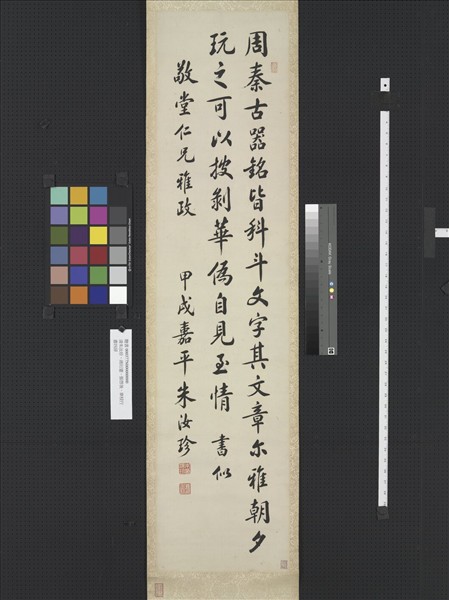 周秦古器銘皆科斗文字其文章尔雅朝夕
玩之可以披剥華偽自見至情 書似
敬堂仁兄雅政 甲戌嘉平朱汝珍